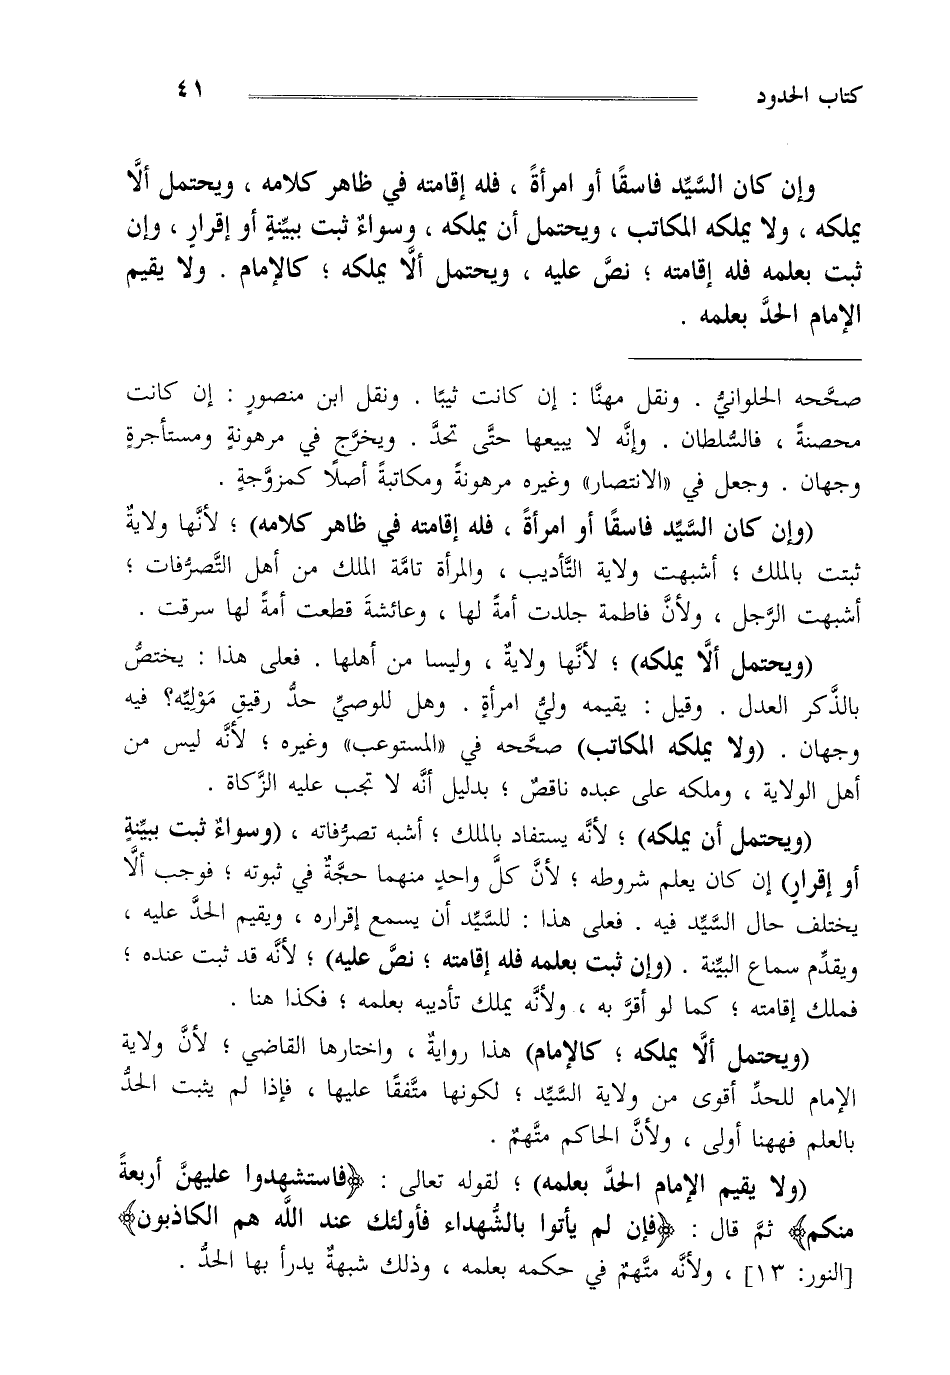 كتاب الحدود ٤١
وإن كان السَّيِّد فاسقًا أو امرأةً ، فله إقامته في ظاهر كلامه ، ويحتمل ألَّا
يملكه ، ولا يملكه المكاتب ، ويحتمل أن يملكه ، وسواءٌ ثبت ببيِّنةٍ أو إقرارٍ ، وإن
ثبت بعلمه فله إقامته ؛ نصَّ عليه ، ويحتمل ألَّا يملكه ؛ كالإمام . ولا يقيم
الإمام الحدَّ بعلمه .
صحَّحه الحلوانيُّ . ونقل مهنَّا : إن كانت ثيبًا . ونقل ابن منصورٍ : إن كانت
محصنةً ، فالسُّلطان . وإنَّه لا يبيعها حتَّى تحدَّ . ويخرَّج في مرهونةٍ ومستأجرةٍ
وجهان . وجعل في «الانتصار» وغيره مرهونةً ومكاتبةً أصلًا كمزوَّجةٍ .
(وإن كان السَّيِّد فاسقًا أو امرأةً ، فله إقامته في ظاهر كلامه) ؛ لأنَّها ولايةٌ
ثبتت بالملك ؛ أشبهت ولاية التَّأديب ، والمرأة تامَّة الملك من أهل التَّصرُّفات ؛
أشبهت الرَّجل ، ولأنَّ فاطمة جلدت أمةً لها ، وعائشةَ قطعت أمةً لها سرقت .
(ويحتمل ألَّا يملكه) ؛ لأنَّها ولايةٌ ، وليسا من أهلها . فعلى هذا : يختصُّ
بالذَّكر العدل . وقيل : يقيمه وليُّ امرأةٍ . وهل للوصيِّ حدُّ رقيقِ مَوْلِيِّه؟ فيه
وجهان . (ولا يملكه المكاتب) صحَّحه في «المستوعب» وغيره ؛ لأنَّه ليس من
أهل الولاية ، وملكه على عبده ناقصٌ ؛ بدليل أنَّه لا تجب عليه الزَّكاة .
(ويحتمل أن يملكه) ؛ لأنَّه يستفاد بالملك ؛ أشبه تصرُّفاته ، (وسواءٌ ثبت ببيِّنةٍ
أو إقرارٍ) إن كان يعلم شروطه ؛ لأنَّ كلَّ واحدٍ منهما حجَّةٌ في ثبوته ؛ فوجب ألَّا
يختلف حال السَّيِّد فيه . فعلى هذا : للسَّيِّد أن يسمع إقراره ، ويقيم الحدَّ عليه ،
ويقدِّم سماع البيِّنة . (وإن ثبت بعلمه فله إقامته ؛ نصَّ عليه) ؛ لأنَّه قد ثبت عنده ؛
فملك إقامته ؛ كما لو أقرَّ به ، ولأنَّه يملك تأديبه بعلمه ؛ فكذا هنا .
(ويحتمل ألَّا يملكه ؛ كالإمام) هذا روايةٌ ، واختارها القاضي ؛ لأنَّ ولاية
الإمام للحدِّ أقوى من ولاية السَّيِّد ؛ لكونها متَّفقًا عليها ، فإذا لم يثبت الحدُّ
بالعلم فههنا أولى ، ولأنَّ الحاكم متَّهمٌ .
(ولا يقيم الإمام الحدَّ بعلمه) ؛ لقوله تعالى : ﴿فاستشهدوا عليهنَّ أربعةً
منكم﴾ ثمَّ قال : ﴿فإن لم يأتوا بالشُّهداء فأولئك عند اللَّه هم الكاذبون﴾
[النور: ١٣] ، ولأنَّه متَّهمٌ في حكمه بعلمه ، وذلك شبهةٌ يدرأ بها الحدُّ .